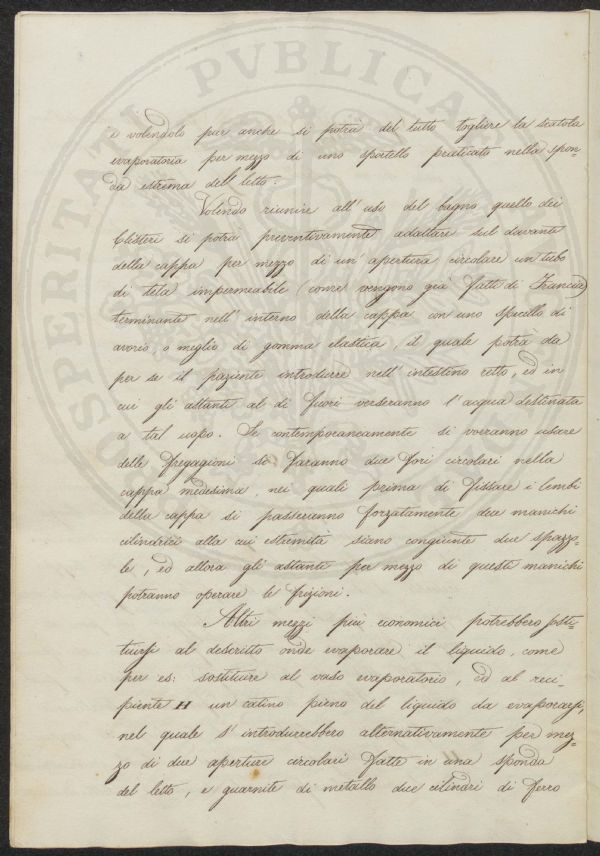 e volendolo pur anche si potrà del tutto togliere la scatola
evaporatoria per mezzo di uno sportello praticato nella spon=
da estrema dell' letto.
Volendo riunire all' uso del bagno quello dei
Clisteri si potrà preventivamente adattare sul davante
della cappa per mezzo di un' apertura circolare un tubo
di tela impermeabile (come vengono già fatti di Francia)
terminante nell' interno della cappa con uno spicello di
avorio, o meglio di gomma elastica, il quale potrà da
per se il paziente introdurre nell' intestino retto, ed in
cui gli astanti al di fuori verseranno l' acqua destinata
a tal uopo. Se contemporaneamente si vorranno usare
delle fregagioni si faranno due fori circolari nella
cappa medesima, nei quali prima di fissare i lembi
della cappa si passerienno forzatamente due manichi
cilindrici alla cui estremità siano congiunte due spazzo=
le, ed allora gli astanti per mezzo di questi manichi
potranno operare le frizioni.
Altri mezzi più economici potrebbero sosti=
tuirsi al descritto onde evaporare il liquido, come
per es: sostituire al vaso evaporatorio, ed al reci=
piente H un catino pieno del liquido da evaporarsi,
nel quale s' introdurrebbero alternativamente per mez=
zo di due aperture circolari fatte in una sponda
del letto, e guarnite di metallo due cilindri di ferro
PROSPERITATI PVBLICAE